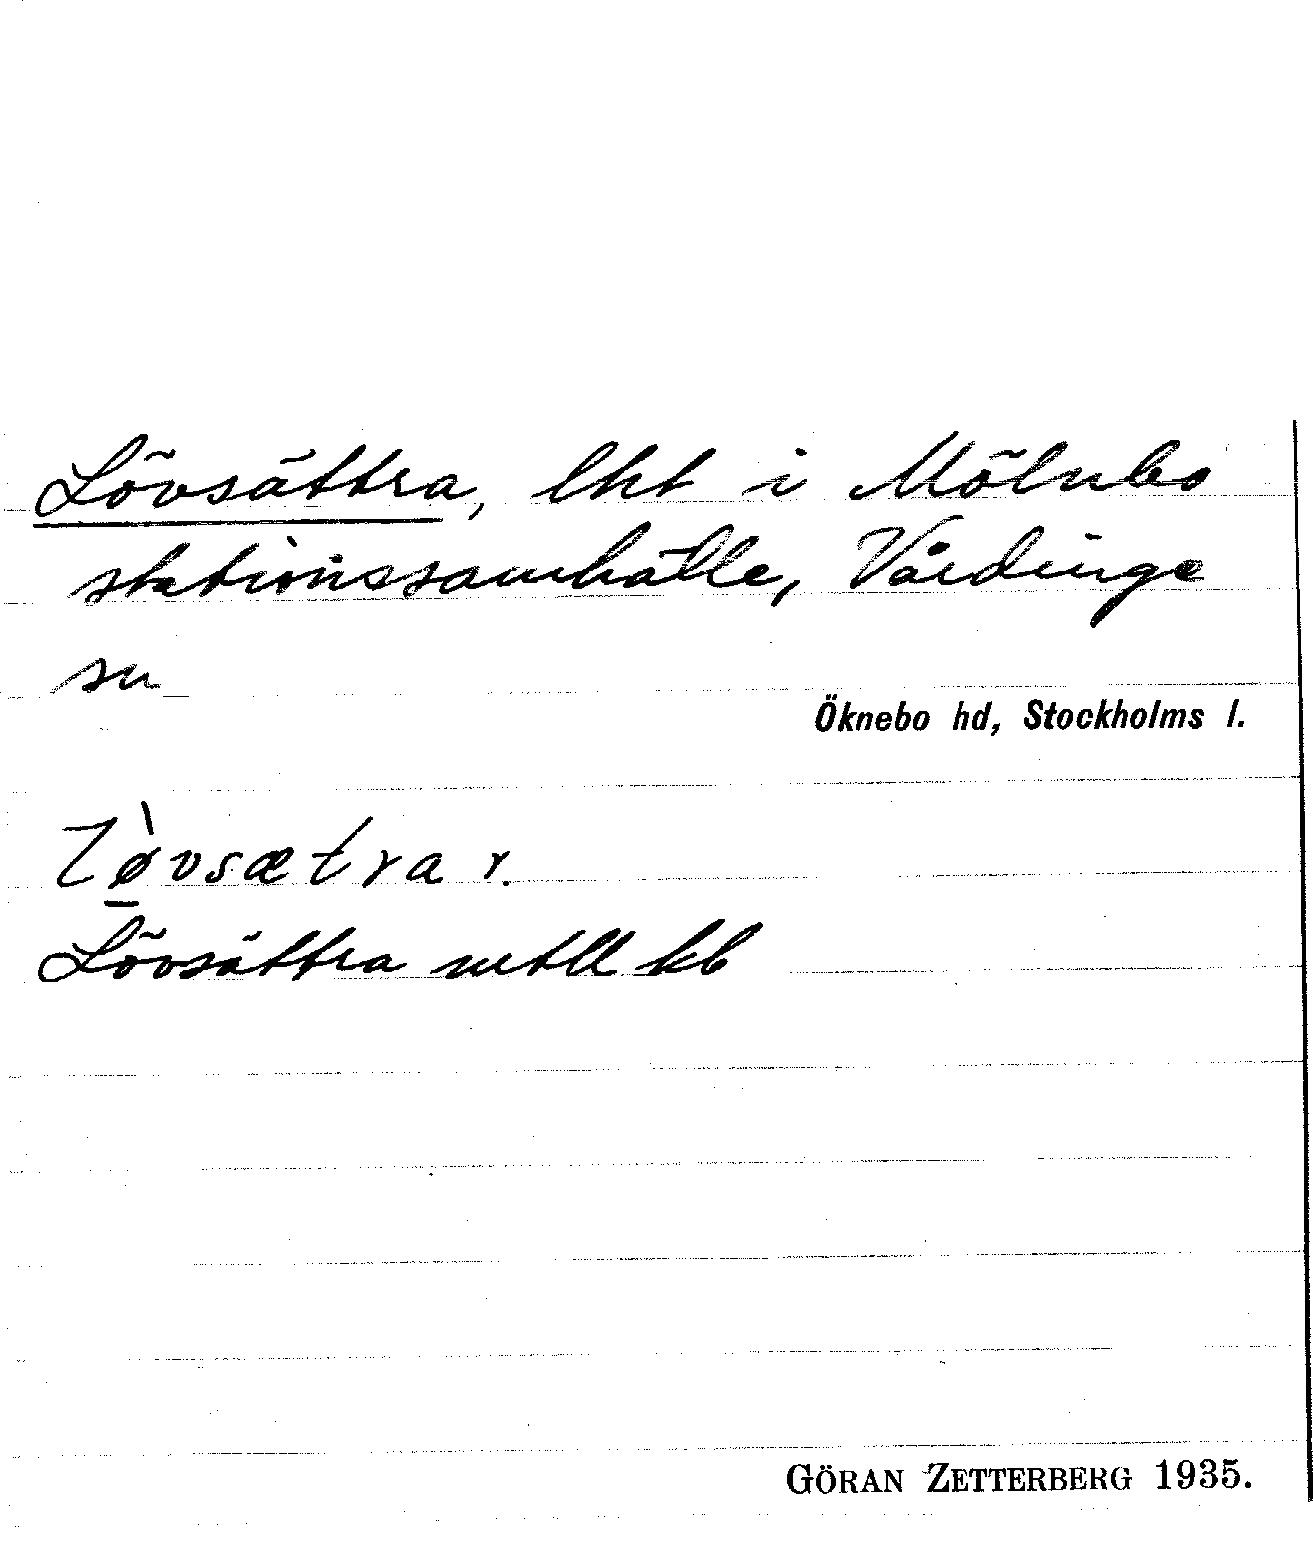 Lövsättra, lht i Mölnbo
stationssamhälle, Vårdinge
sn
Öknebo hd, Stockholms l.
lø̀vsætra r.
Lövsättra mtll kb
GÖRAN ZETTERBERG 1935.